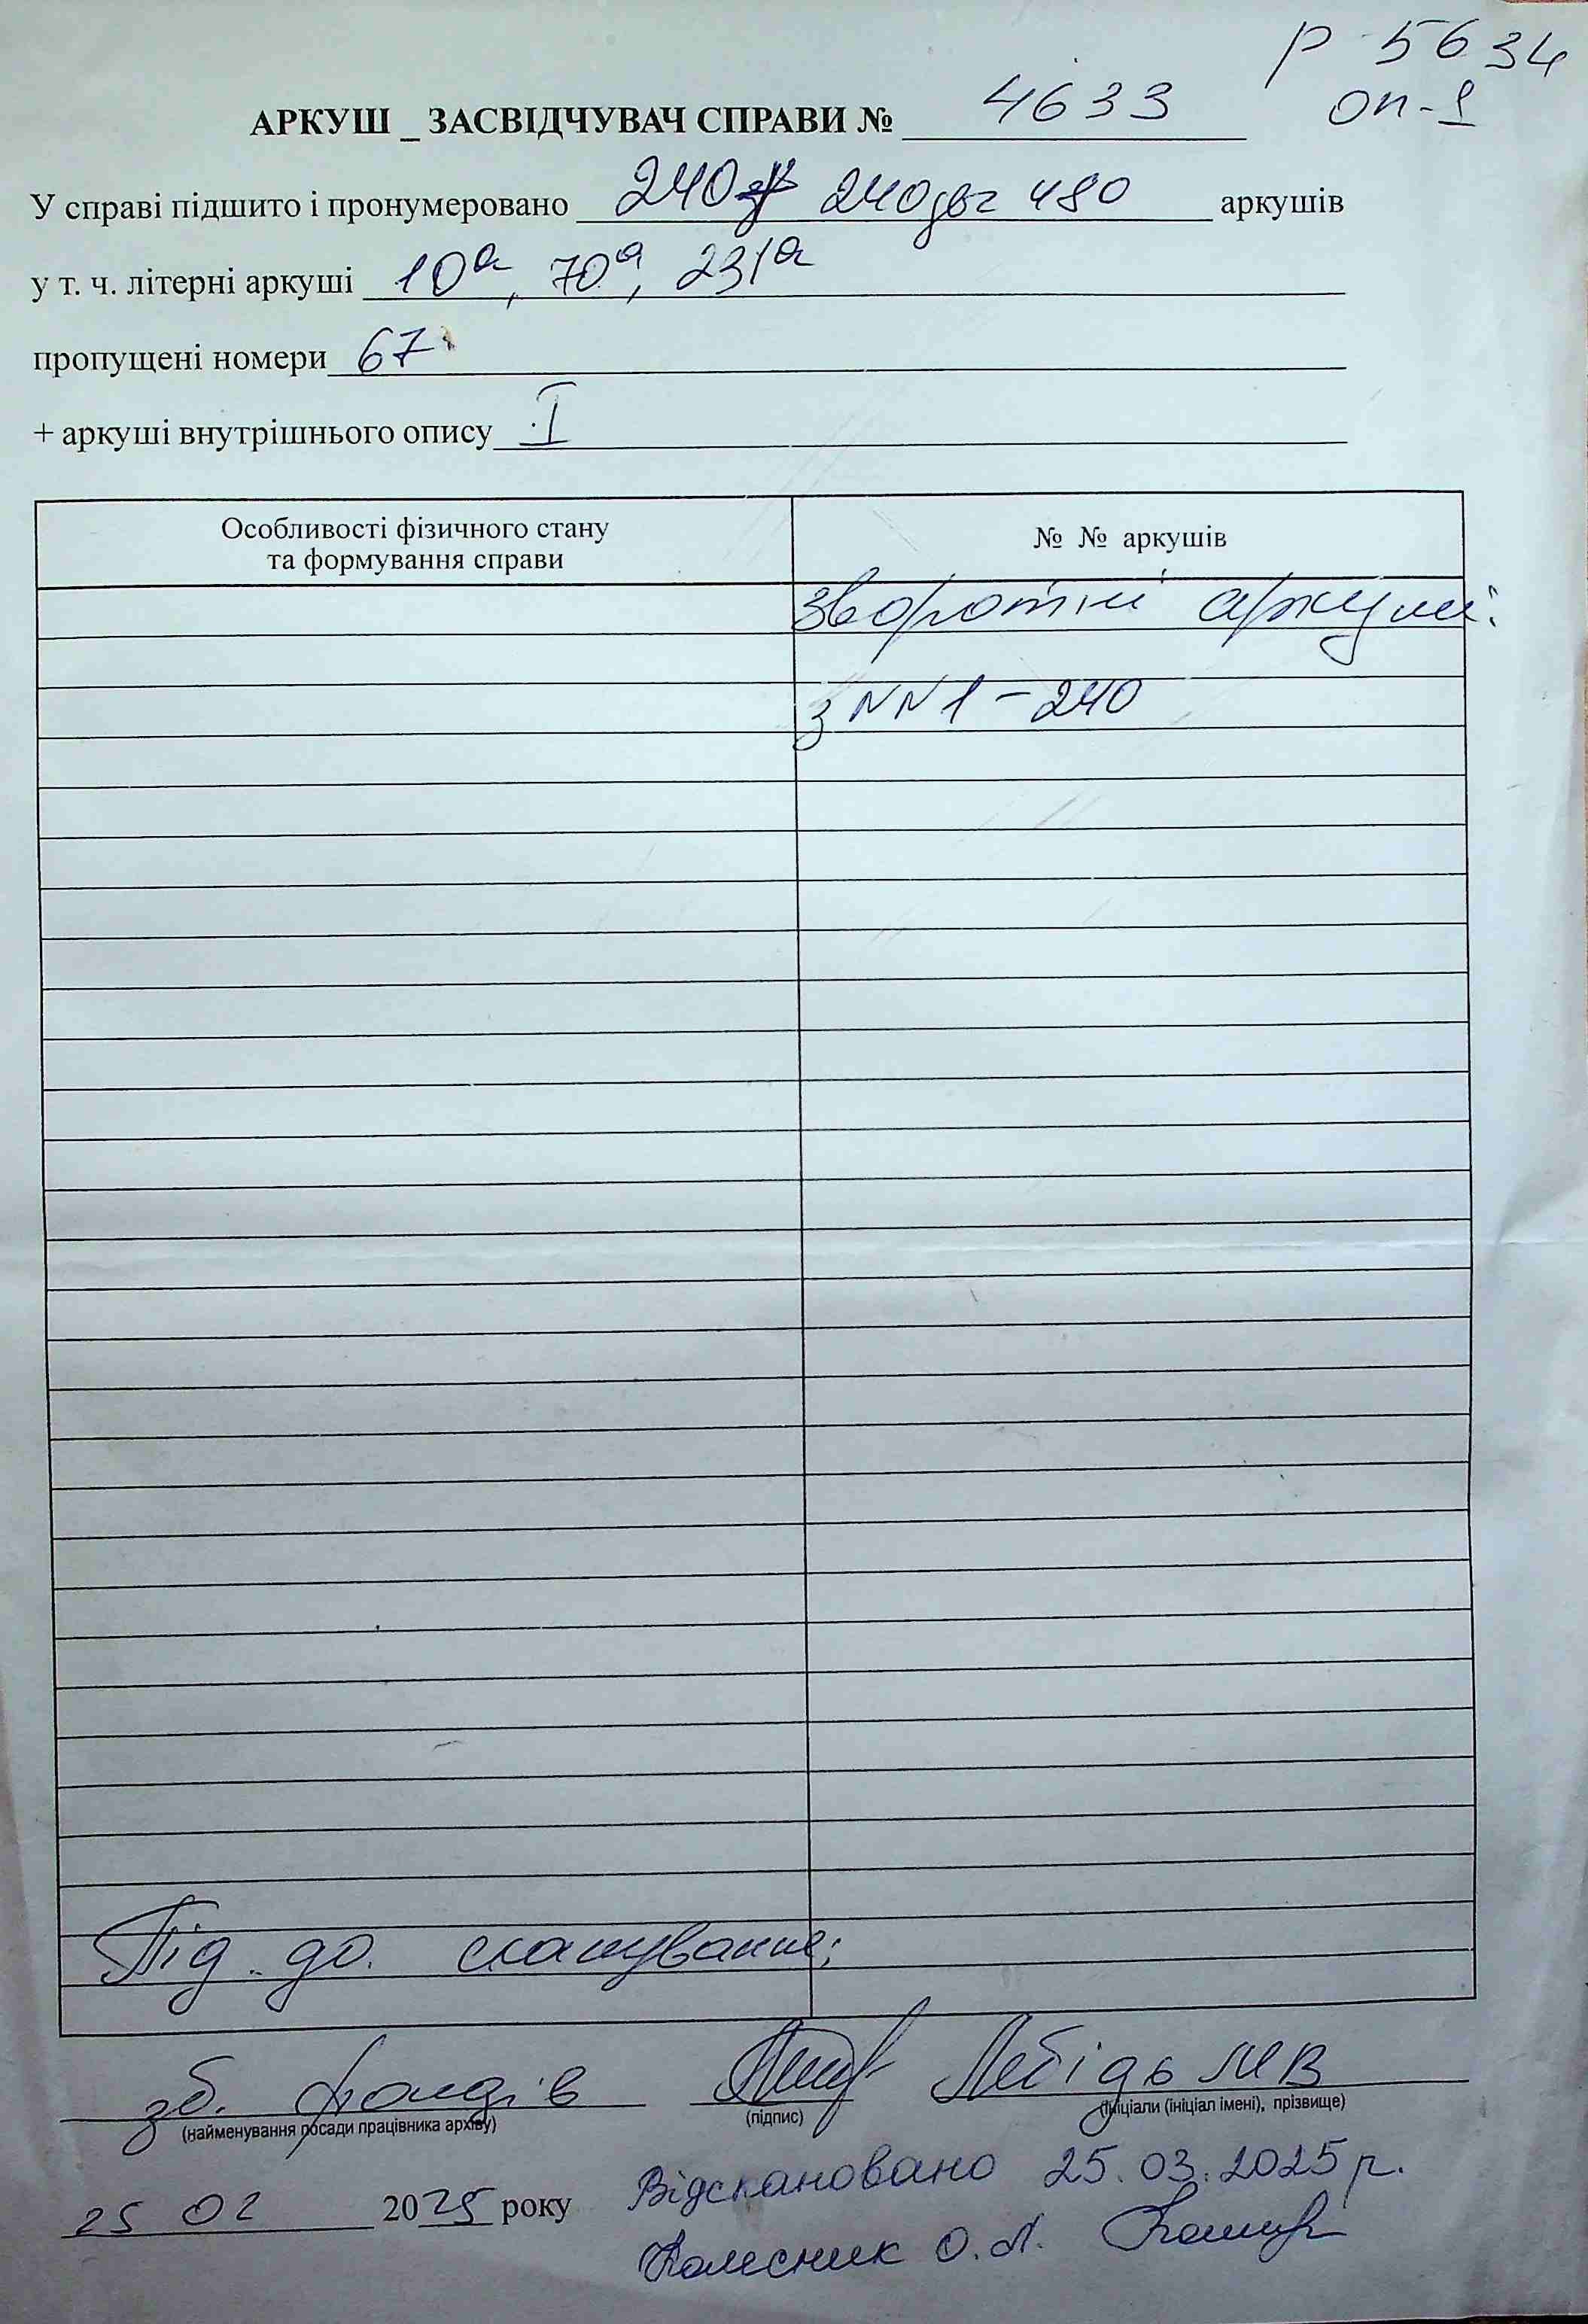 Р 5634
АРКУШ _ ЗАСВІДЧУВАЧ СПРАВИ № 4633 оп-1
У справі підшито і пронумеровано 240 240 480 аркушів
у т. ч. літерні аркуші 10а, 70а, 231а
пропущені номери 67
+ аркуші внутрішнього опису I
Особливості фізичного стану
та формування справи
№ № аркушів
зворотні аркуші:
з NN 1 - 240
Під. до. сканування:
зб. фондів Лебідь МВ
(найменування посади працівника архіву) (підпис) (ініціали (ініціал імені), прізвище)
Відскановано 25.03.2025 р.
25 02 2025 року
Колесник О. Л.